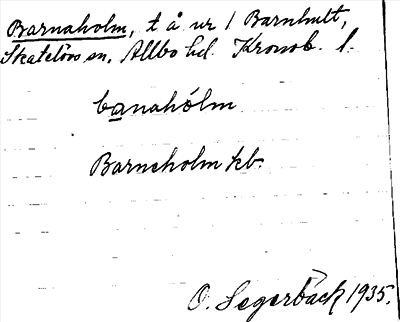 Barnaholm, t å ur / Barnhult,
Skatelövs sn, Allbo hd. Kronob. l.
banahólm
Barneholm kb.
O. Segerbäck 1935.